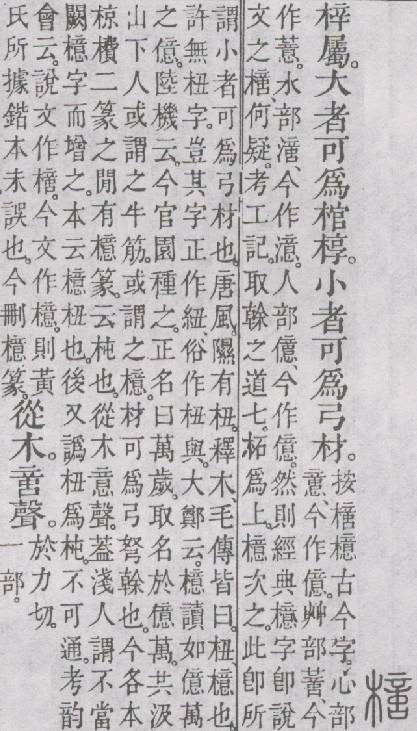 梓屬。大者可爲棺椁。小者可爲弓材。
按𣚍檍古今字。心部
𢡃、今作億。艸部𦺳今
作薏。水部㵝、今作澺。人部億、今作億。然則經典檍字卽說
文之𣚍、何疑。考工記。取榦之道七。柘爲上。檍次之。此卽所
謂小者可爲弓材也。唐風。隰有杻。釋木、毛傳皆曰。杻、檍也。
許無杻字。豈其字正作紐、俗作杻與。大鄭云。檍讀如億萬
之億。陸機云。今官園種之。正名曰萬歲。取名於億萬。共汲
山下人或謂之牛筋。或謂之檍。材可爲弓弩榦也。今各本
椋檟二篆之閒有檍篆。云杶也。從木意聲。葢淺人謂不當
闕檍字而增之。本云檍杻也。後又譌杻爲杶。不可通。考韵
會云。說文作𣚍。今文作檍。則黃
氏所據鍇本未誤也。今刪檍篆。
從木。𠶷聲。
於力切。
一部。
𣚍